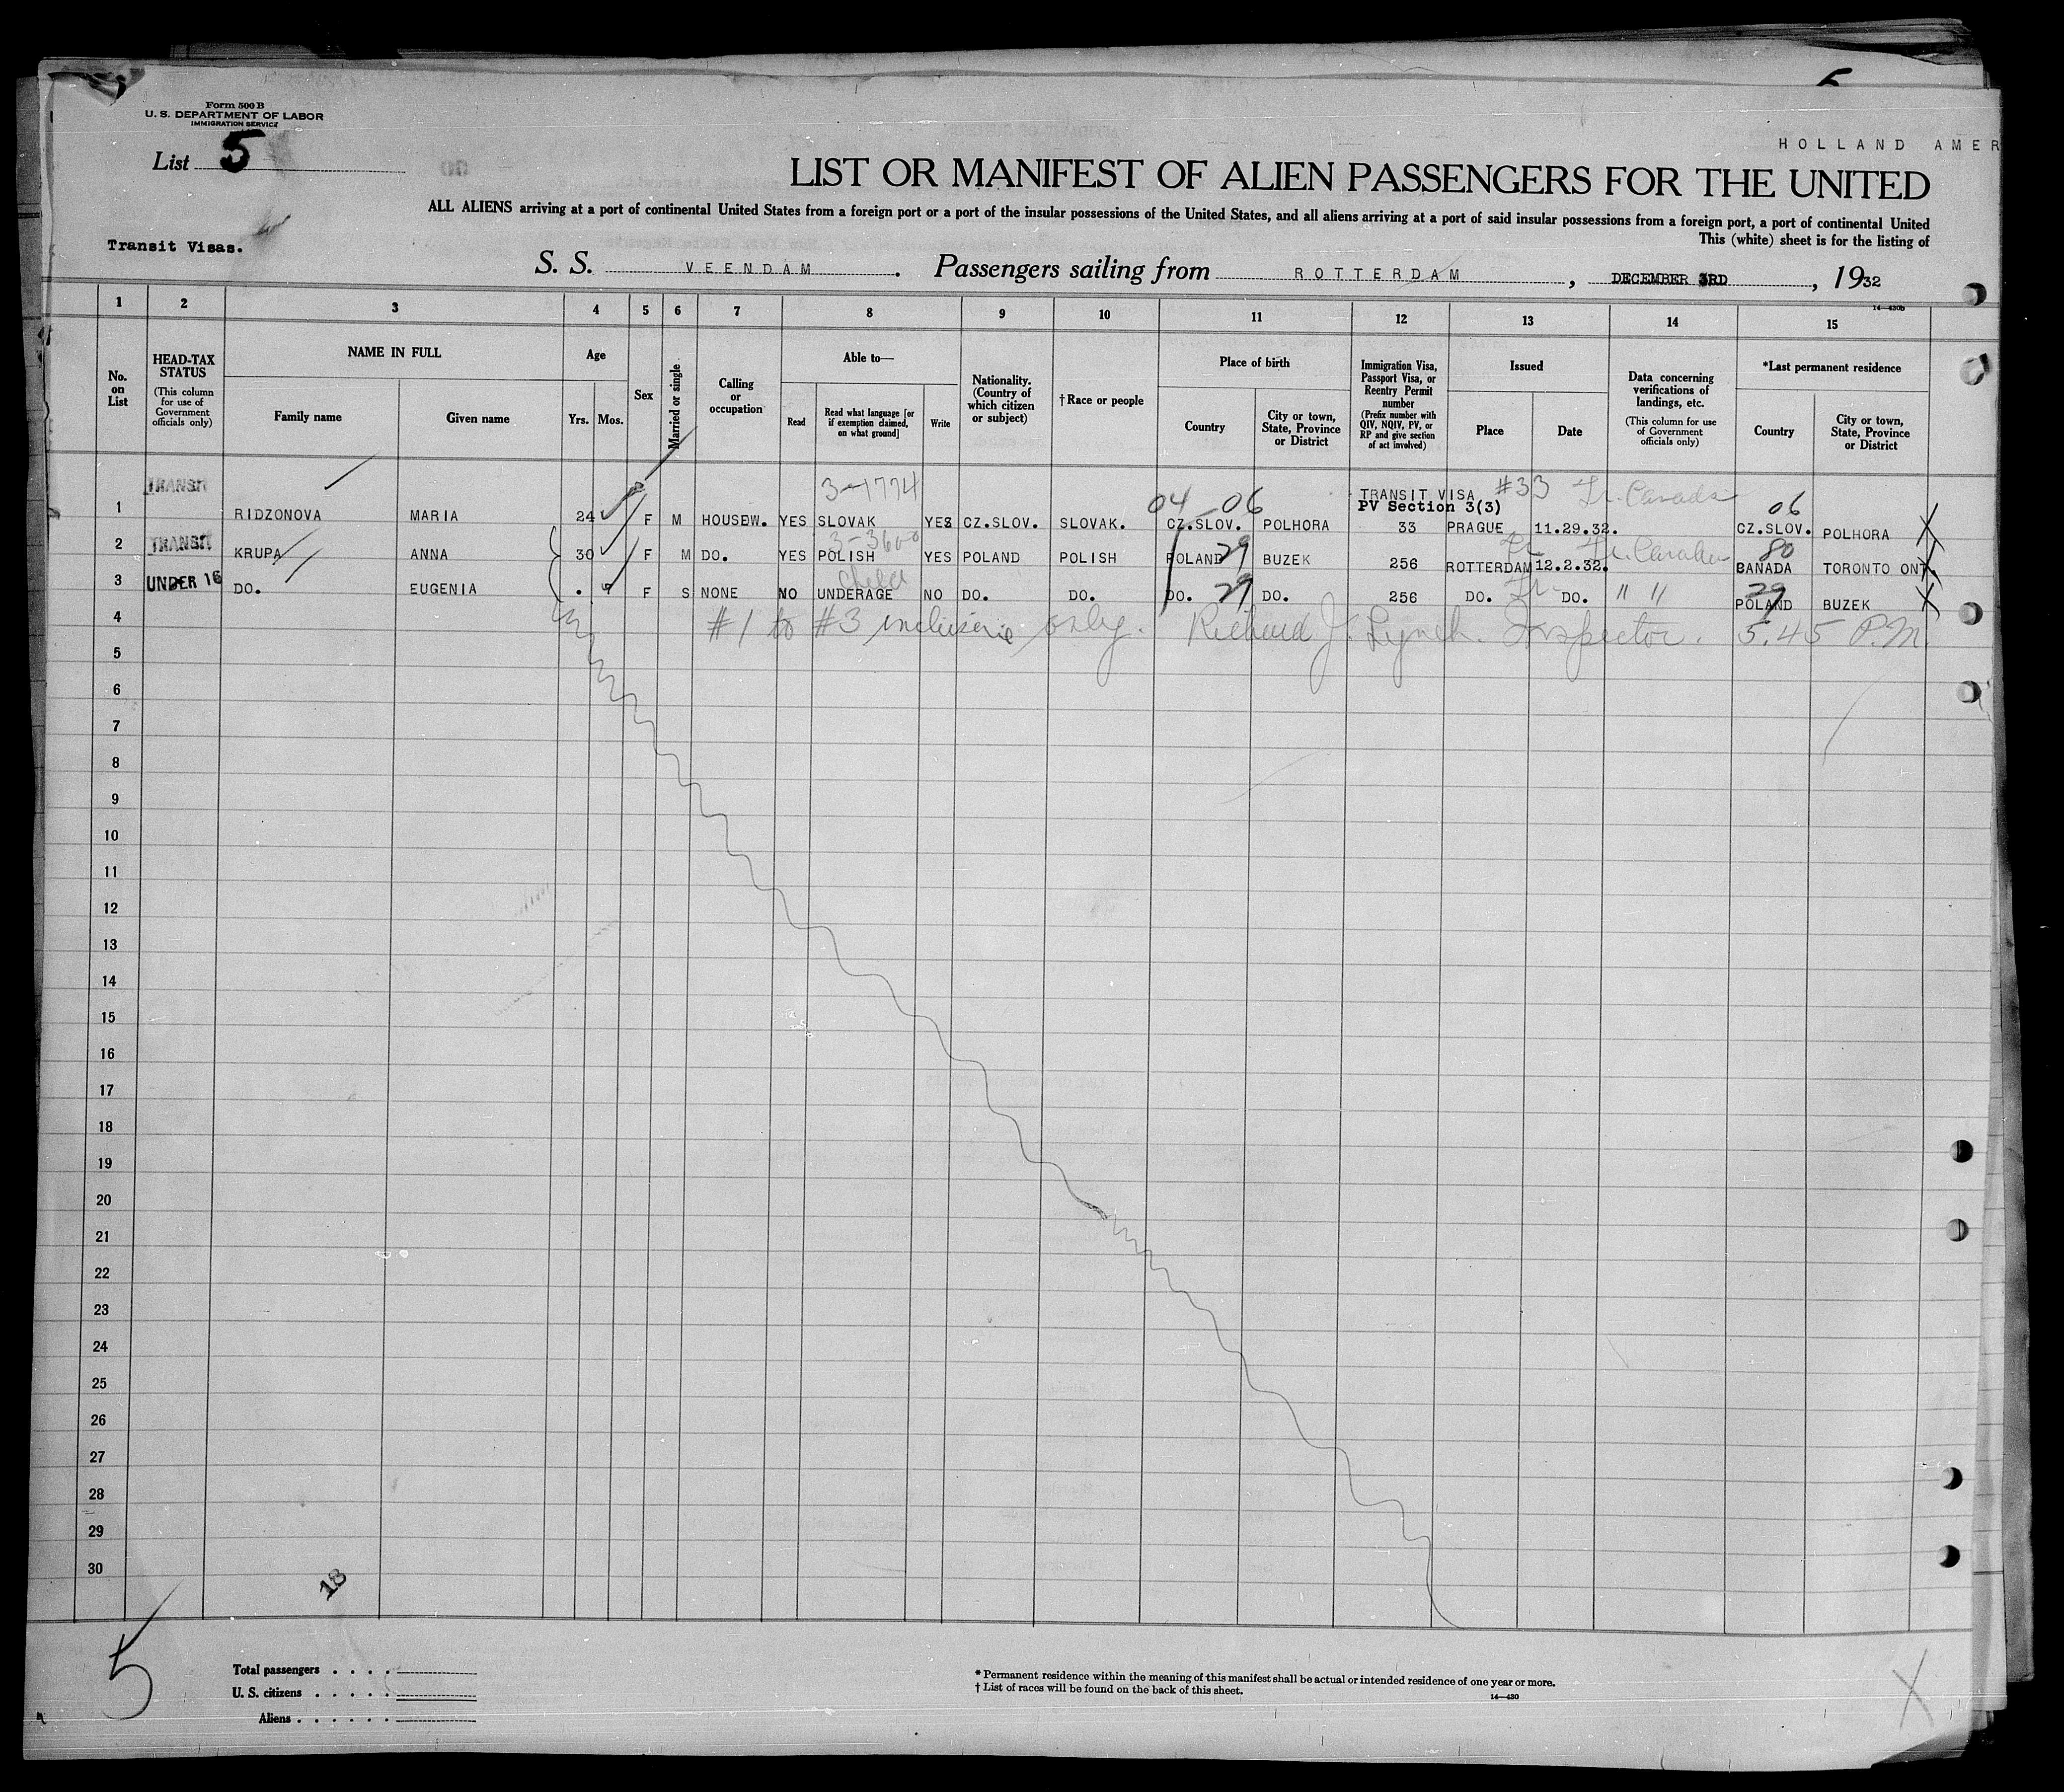 Form 500 B
U. S. DEPARTMENT OF LABOR
IMMIGRATION SERVICE
List 5
HOLLAND AMER
LIST OR MANIFEST OF ALIEN PASSENGERS FOR THE UNITED
ALL ALIENS arriving at a port of continental United States from a foreign port or a port of the insular possessions of the United States, and all aliens arriving at a port of said insular possessions from a foreign port, a port of continental United
This (white) sheet is for the listing of
Transit Visas.
S. S. VEENDAM. Passengers sailing from ROTTERDAM, DECEMBER 3RD, 1932
14—430b
1 2 3 4 5 6 7 8 9 10 11 12 13 14 15
No. on List
HEAD-TAX STATUS (This column for use of Government officials only)
NAME IN FULL
Family name
Given name
Age
Yrs.
Mos.
Sex
Married or single
Calling or occupation
Able to—
Read
Read what language [or if exemption claimed, on what ground]
Write
Nationality. (Country of which citizen or subject)
†Race or people
Place of birth
Country
City or town, State, Province or District
Immigration Visa, Passport Visa, or Reentry Permit number (Prefix number with QIV, NQIV, PV, or RP and give section of act involved)
Issued
Place
Date
Data concerning verifications of landings, etc. (This column for use of Government officials only)
*Last permanent residence
Country
City or town, State, Province or District
TRANSIT 3-1774 04-06 TRANSIT VISA #33 Tr. Canada 06
PV Section 3(3)
1 RIDZONOVA MARIA 24 F M HOUSEW. YES SLOVAK YES CZ.SLOV. SLOVAK. CZ.SLOV. POLHORA 33 PRAGUE 11.29.32. CZ.SLOV. POLHORA X
3-3600 Tr. Canada 80
2 TRANSIT KRUPA ANNA 30 F M DO. YES POLISH YES POLAND POLISH POLAND 29 BUZEK 256 ROTTERDAM 12.2.32. BANADA TORONTO ONT. X
3 UNDER 16 DO. EUGENIA . F S NONE NO UNDERAGE NO DO. DO. DO. 29 DO. 256 DO. DO. " " POLAND 29 BUZEK X
4 #1 to #3 inclusive only. Richard J. Lynch. Inspector. 5.45 P.M.
5
6
7
8
9
10
11
12
13
14
15
16
17
18
19
20
21
22
23
24
25
26
27
28
29
30
18
5
Total passengers
U. S. citizens
Aliens
* Permanent residence within the meaning of this manifest shall be actual or intended residence of one year or more.
† List of races will be found on the back of this sheet.
14—430
X